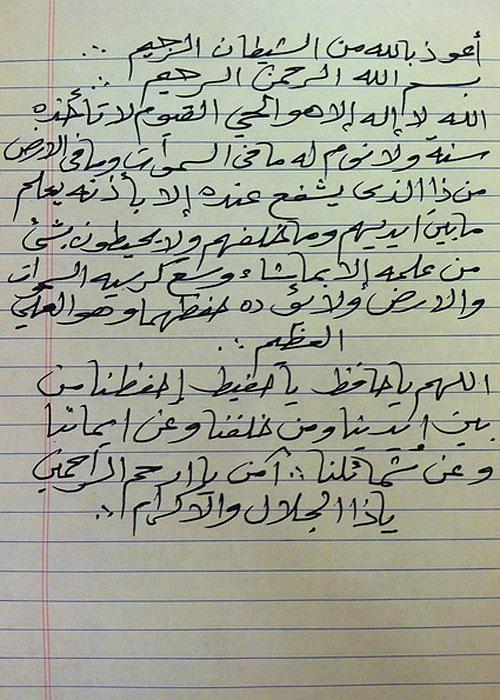 أعوذ بالله من الشيطان الرجيم ∴
بسم الله الرحمن الرحيم ∴
الله لا إله إلا هو الحي القيوم لا تأخذه
سنة ولا نوم له ما في السموات وما في الارض
من ذا الذي يشفع عنده إلا بأذنه يعلم
ما بين ايديهم وما خلفهم ولا يحيطون بشئ
من علمه إلا بما شاء وسع كرسيه السموات
والارض ولا يؤده حفظهما وهو العلي
العظيم ∴
اللهم يا حافظ يا حفيظ إحفظنا من
بين ايدينا ومن خلفنا وعن ايماننا
وعن شمائلنا ∴ آمن يا ارحم الراحمين
ياذا الجلال والاكرام ∴